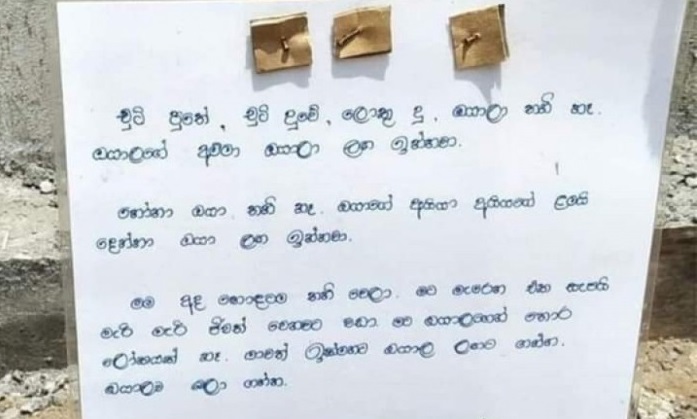 චුටි පුතේ, චුටි දුවේ, ලොකු දූ, ඔයාලා තනි නෑ.
ඔයාලගේ අම්මා ඔයාලා ලඟ ඉන්නවා.
නෝනා ඔයා තනි නෑ. ඔයාගේ අයියා අයියගේ ළමයි
දෙන්නා ඔයා ලඟ ඉන්නවා.
මම අද හොඳටම තනි වෙලා. මට මැරෙන එක සැපයි
මැරි මැරි ජීවත් වෙනවට වඩා. මට ඔයාලගෙන් තොර
ලෝකයක් නෑ. මාවත් ඉක්මනට ඔයාල ලඟට ගන්න.
ඔයාලව බලා ගන්න.